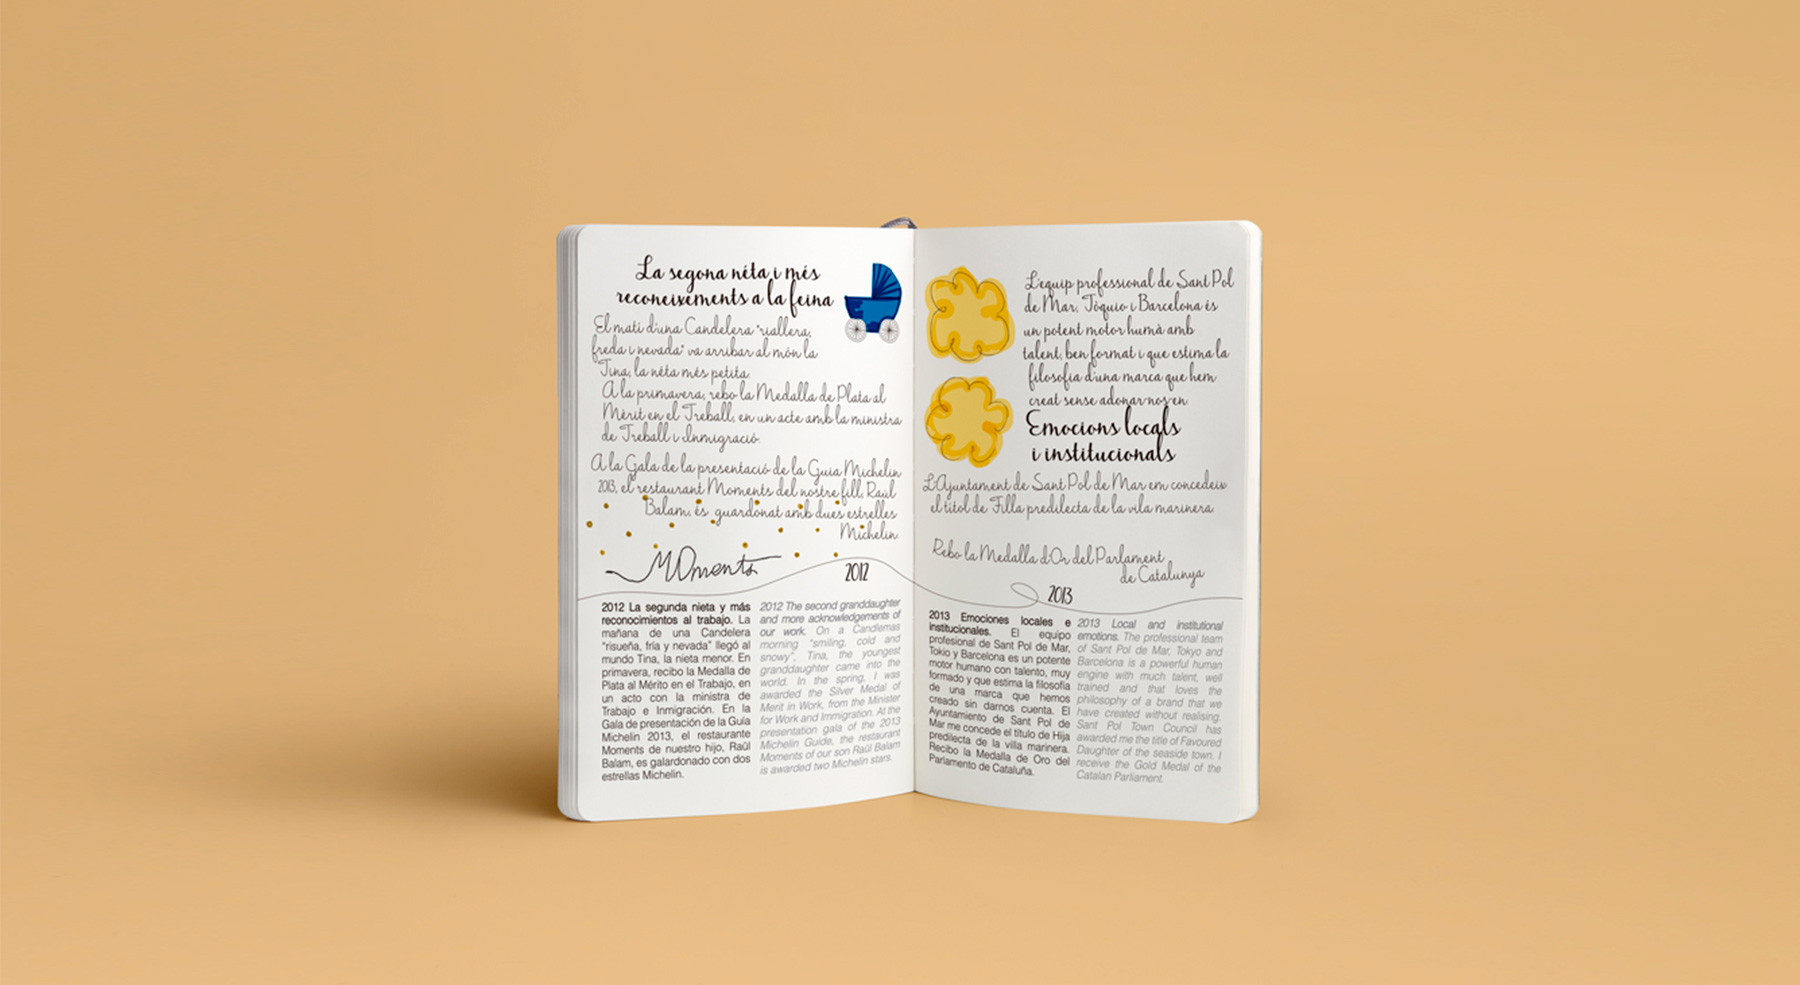 La segona néta i més
reconeixements a la feina
El matí d'una Candelera "riallera,
freda i nevada" va arribar al món la
Tina, la néta més petita.
A la primavera, rebo la Medalla de Plata al
Mèrit en el Treball, en un acte amb la ministra
de Treball i Inmigració.
A la Gala de la presentació de la Guia Michelin
2013, el restaurant Moments del nostre fill, Raül
Balam, és guardonat amb dues estrelles
Michelin.
MOments
2012
2012 La segunda nieta y más
reconocimientos al trabajo. La
mañana de una Candelera
"risueña, fría y nevada" llegó al
mundo Tina, la nieta menor. En
primavera, recibo la Medalla de
Plata al Mérito en el Trabajo, en
un acto con la ministra de
Trabajo e Inmigración. En la
Gala de presentación de la Guía
Michelin 2013, el restaurante
Moments de nuestro hijo, Raül
Balam, es galardonado con dos
estrellas Michelin.
2012 The second granddaughter
and more acknowledgements of
our work. On a Candlemas
morning "smiling, cold and
snowy", Tina, the youngest
granddaughter came into the
world. In the spring, I was
awarded the Silver Medal of
Merit in Work, from the Minister
for Work and Immigration. At the
presentation gala of the 2013
Michelin Guide, the restaurant
Moments of our son Raül Balam
is awarded two Michelin stars.
L'equip professional de Sant Pol
de Mar, Tòquio i Barcelona és
un potent motor humà amb
talent, ben format i que estima la
filosofia d'una marca que hem
creat sense adonar-nos'en.
Emocions locals
i institucionals
L'Ajuntament de Sant Pol de Mar em concedeix
el títol de Filla predilecta de la vila marinera.
Rebo la Medalla d'Or del Parlament
de Catalunya
2013
2013 Emociones locales e
institucionales. El equipo
profesional de Sant Pol de Mar,
Tokio y Barcelona es un potente
motor humano con talento, muy
formado y que estima la filosofía
de una marca que hemos
creado sin darnos cuenta. El
Ayuntamiento de Sant Pol de
Mar me concede el título de Hija
predilecta de la villa marinera.
Recibo la Medalla de Oro del
Parlamento de Cataluña.
2013 Local and institutional
emotions. The professional team
of Sant Pol de Mar, Tokyo and
Barcelona is a powerful human
engine with much talent, well
trained and that loves the
philosophy of a brand that we
have created without realising.
Sant Pol Town Council has
awarded me the title of Favoured
Daughter of the seaside town. I
receive the Gold Medal of the
Catalan Parliament.